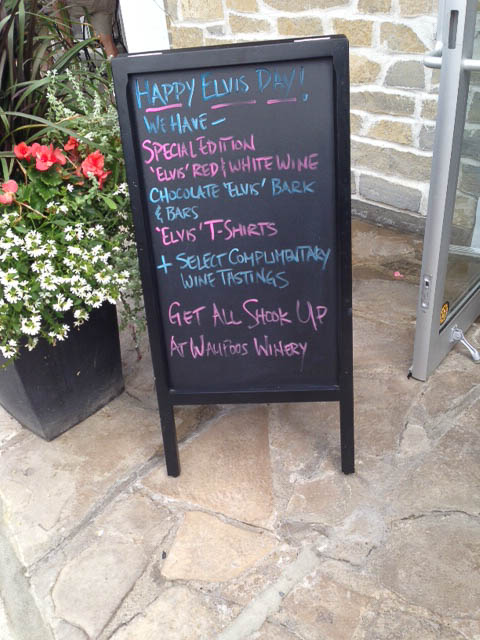 HAPPY ELVIS DAY!
WE HAVE -
SPECIAL EDITION
'ELVIS' RED & WHITE WINE
CHOCOLATE 'ELVIS' BARK
& BARS
'ELVIS' T-SHIRTS
+ SELECT COMPLIMENTARY
WINE TASTINGS
GET ALL SHOOK UP
AT WAUPOOS WINERY